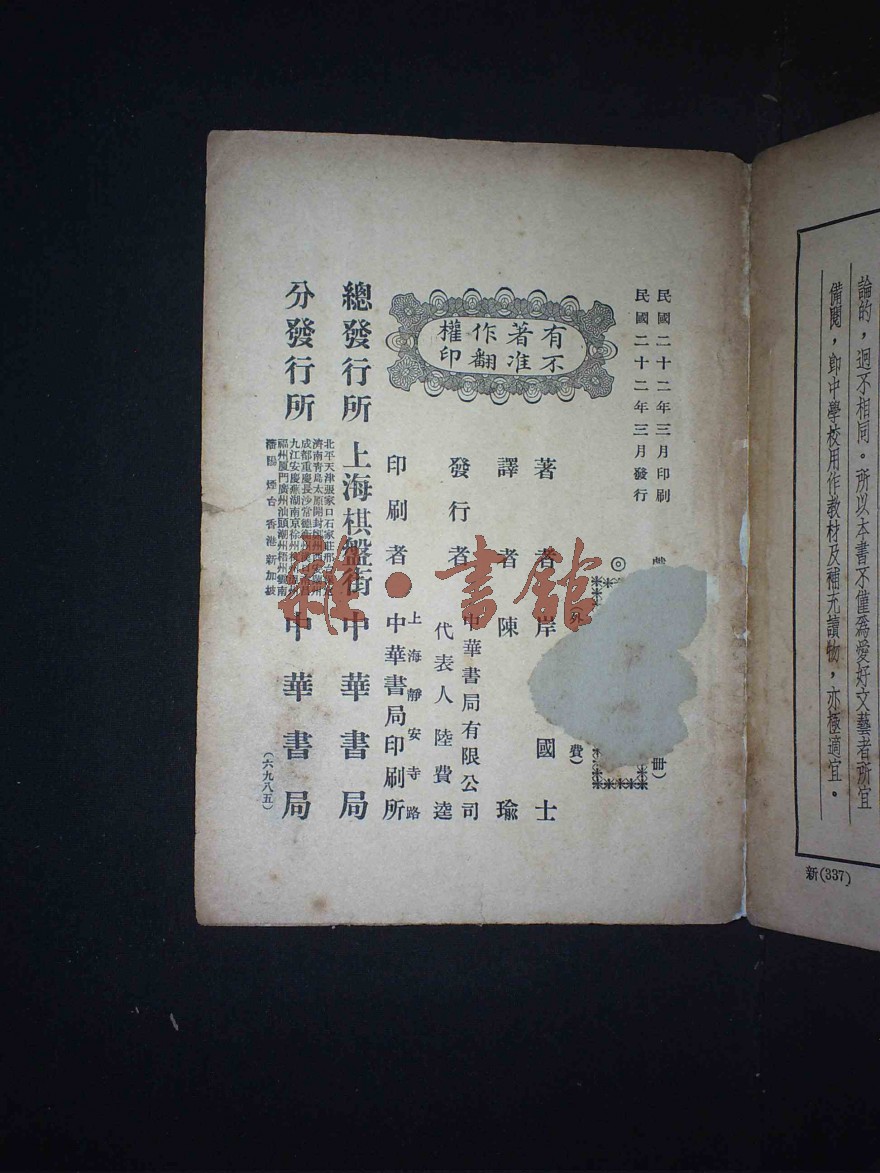 論的，迥不相同。所以本書不僅為愛好文藝者所宜
備閱，卽中學校用作教材及補充讀物，亦極適宜。
新(337)
民國二十二年三月印刷
民國二十二年三月發行
冊）
（外
費）
有著作權
不准翻印
著者 岸 國士
譯者 陳瑜
發行者 中華書局有限公司
代表人 陸費逵
上海靜安寺路
印刷者 中華書局印刷所
總發行所 上海棋盤街 中華書局
分發行所 中華書局
北平天津張家口石家莊邢
濟南青島太原開封
成都重慶長沙常德
九江安慶蕪湖南京徐州
福州厦門廣州汕頭潮州梧州
煙台香港新加坡
（六九八五）
雜·書館